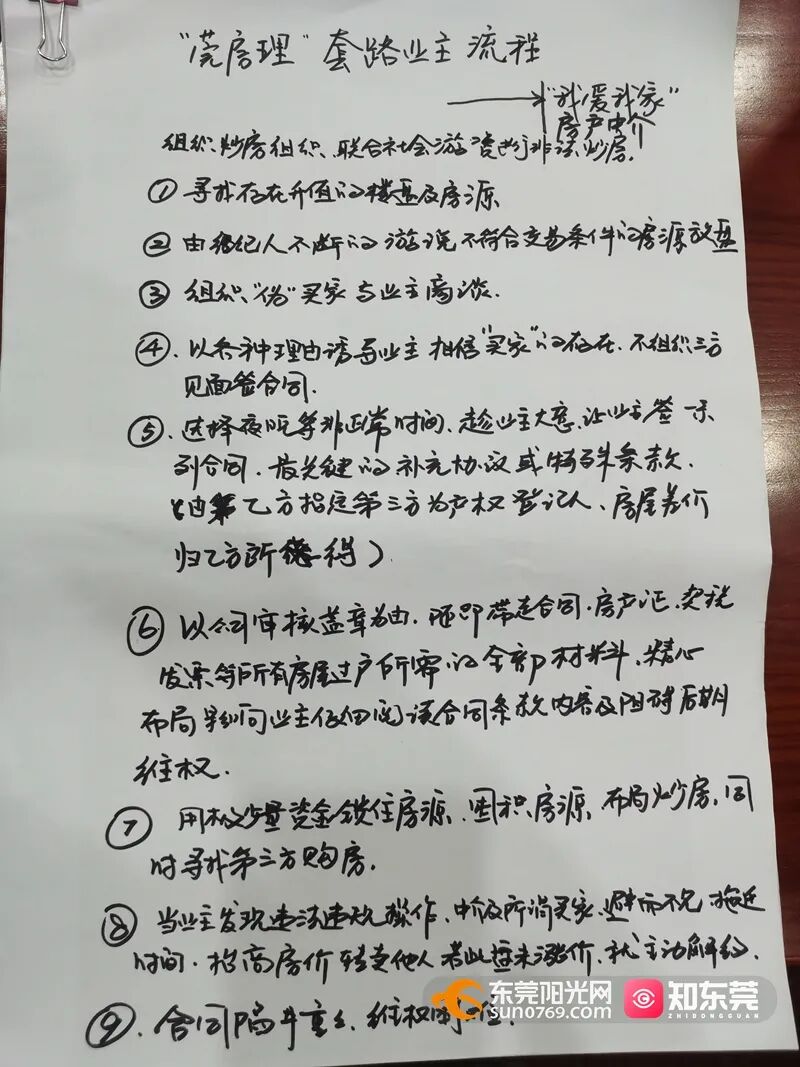 "莞房理"套路业主流程
→"我爱我家"
房产中介
组织炒房组织、联合社会游资进行非法炒房.
① 寻找存在升值的楼盘及房源
② 由经纪人不断的游说不符合交易条件的房源放盘
③ 组织"伪"买家与业主商谈.
④、以各种理由诱导业主相信"买家"的存在、不组织三方
见面签合同.
⑤、选择夜晚等非正常时间、趁业主大意、让业主签一系
列合同、最关键的补充协议或特殊条款.
(由乙方指定第三方为产权登记人、房屋差价
归乙方所得)
⑥ 以公司审核盖章为由、随即带走合同、房产证、契税
发票等所有房屋过户所需的全部材料、精心
布局 业主仔细阅读合同条款内容及阻碍后期
维权.
⑦ 用极少量资金锁住房源、囤积房源、布局炒房、同
时寻找第三方购房.
⑧ 当业主发现违法违规操作、中介及所谓买家避而不见、拖延
时间、抬高房价转卖他人 若此盘未涨价、就主动解约.
⑨、合同陷井重重、维权困难.
东莞阳光网
SUN0769.COM
知东莞
ZHIDONGGUAN